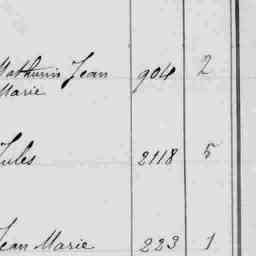 Mathurin Jean 904 2
Marie
Jules 2118 5
Jean Marie 223 1